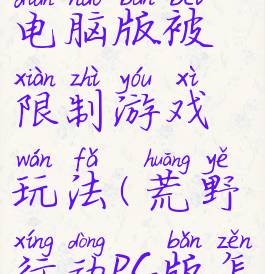 diàn nǎo bǎn bèi
电脑版被
xiàn zhì yóu xì
限制游戏
wán fǎ huāng yě
玩法(荒野
xíng dòng bǎn zěn
行动PC版怎